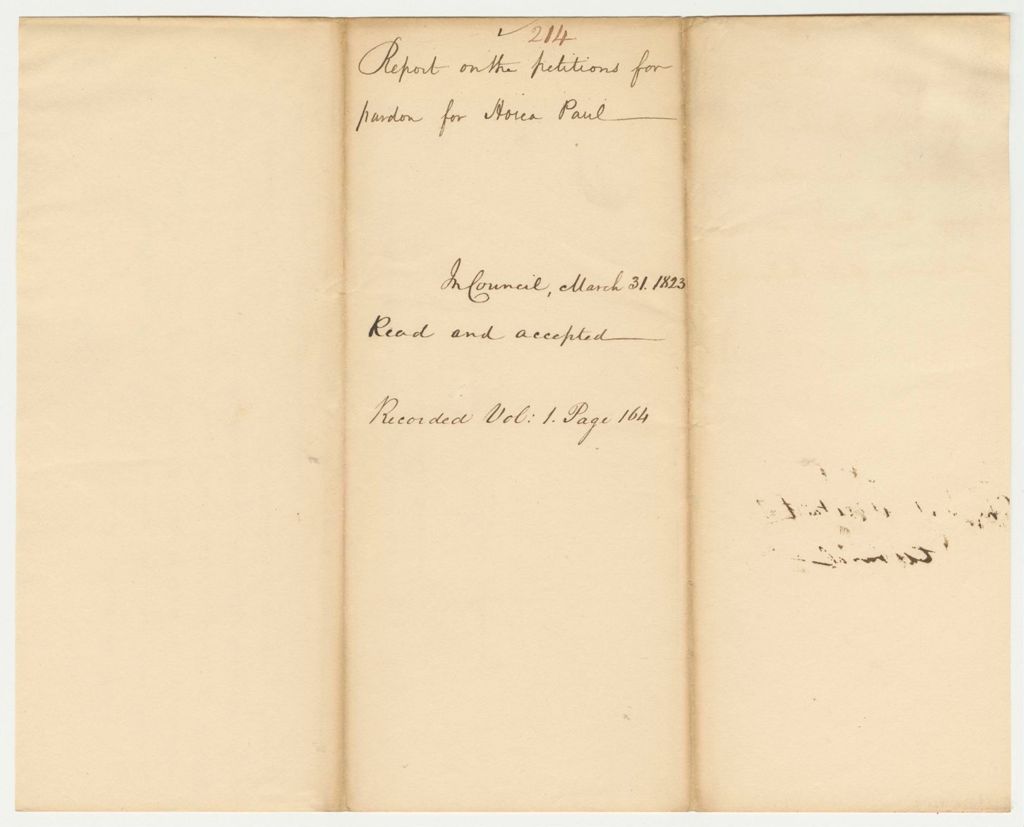 ✓ 214
Report on the petitions for
pardon for Hosea Paul
In Council, March 31. 1823
Read and accepted
Recorded Vol: 1. Page 164